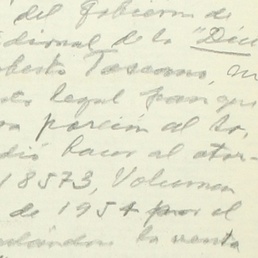 del Gobierno de
dicional de la "Divi
oberto Toscano, M
legal para que
porción al Sr.
dió hacer al otor-
18573, Volumen
de 1954 por el
la venta